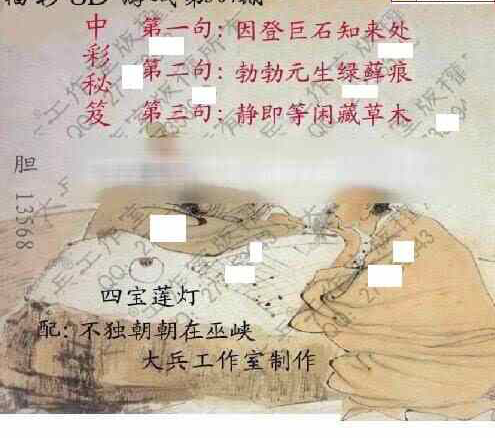 中彩秘笈
第一句: 因登巨石知来处
第二句: 勃勃元生绿藓痕
第三句: 静即等闲藏草木
胆 13568
四宝莲灯
配: 不独朝朝在巫峡
大兵工作室制作